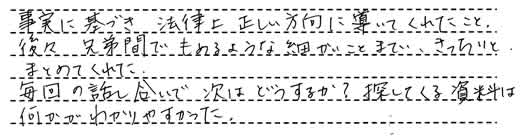 事実に基づき 法律上 正しい方向に導いてくれたこと。
後々 兄弟間でもめるような細かいことまで、きっちりと
まとめてくれた。
毎回の話し合いで 次は どうするか？ 探してくる資料は
何かが わかりやすかった。